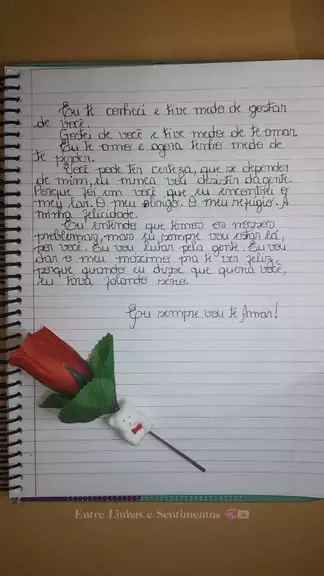 Eu te conheci e tive medo de gostar
de você.
Gostei de você e tive medo de te amar.
Eu te amo e agora tenho medo de
te perder.
Você pode ter certeza, que se depender
de mim, eu nunca vou desistir da gente.
Porque foi em você que eu encontrei o
meu lar. O meu abrigo. O meu refúgio. A
minha felicidade.
Eu entendo que temos os nossos
problemas, mais eu sempre vou estar lá,
por você. Eu vou lutar pela gente. Eu vou
dar o meu máximo pra te ver feliz,
porque quando eu disse que queria você,
eu tava falando sério.
Eu sempre vou te Amar!
Entre Linhas e Sentimentos